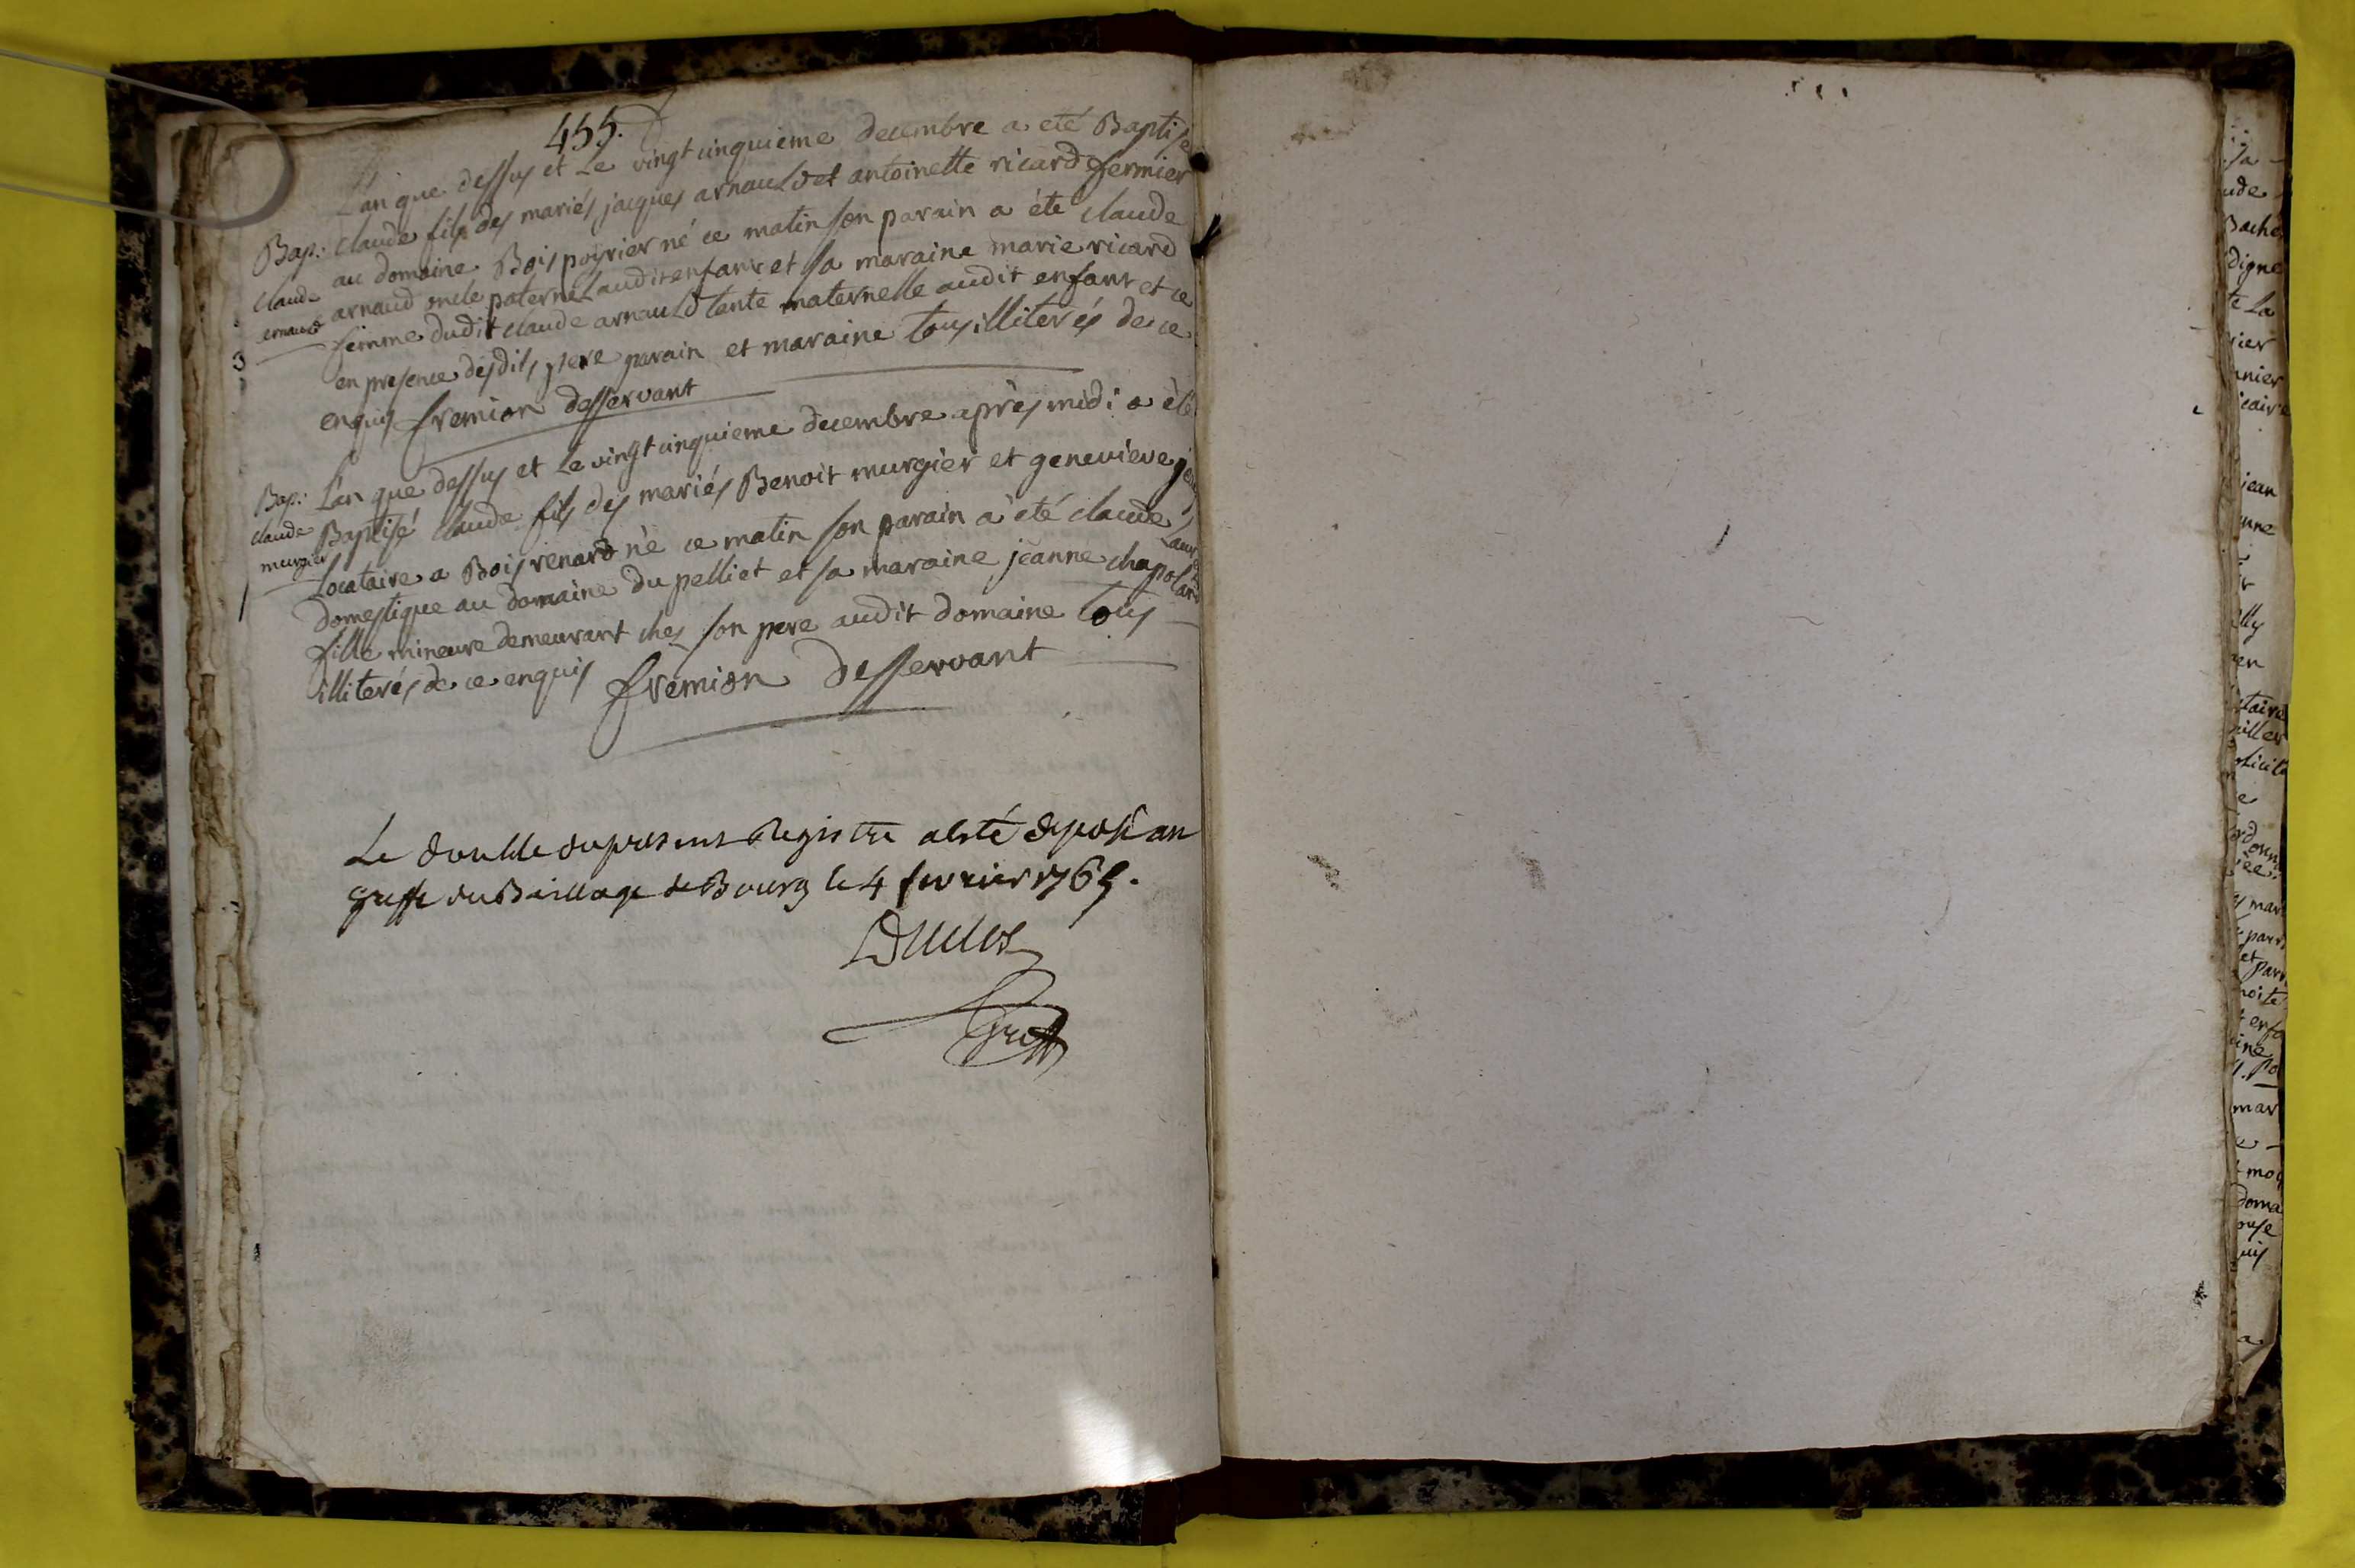 455.
L'an que dessus et Le vingt cinquieme decembre a eté Baptisé
Bap: claude fils des mariés jacques arnauld et antoinette ricard fermier
claude au domaine Bois poirier né ce matin son parain a été claude
arnaud arnaud oncle paternel audit enfant et sa maraine marie ricard
femme dudit claude arnauld tante maternelle audit enfant et ce
3
en presence desdits pere parain et maraine tous illiterés de ce
enquis fremion desservant
Bap: L'an que dessus et Le vingt cinquieme decembre après midi a été
claude Baptisé claude fils des mariés Benoit murgier et genevieve
murgier Locataire a Bois renard né ce matin son parain a été claude Laurent
1
domestique au domaine du pelliet et sa maraine jeanne chapoland
fille mineure demeurant chez son pere audit domaine tous
illiterés de ce enquis fremion desservant
Le double du present Registre a esté deposé au
greffe du Baillage de Bourg le 4 fevrier 1765.
Duclos
Greff
sa
ude
Bache
digne
te La
rier
nier
icaire
jean
nne
lly
en
taire
uiller
licite
e
donn
ée
mar
parr
et par
noite
enfa
ine
po
mar
mo
doma
ouse
uis
a